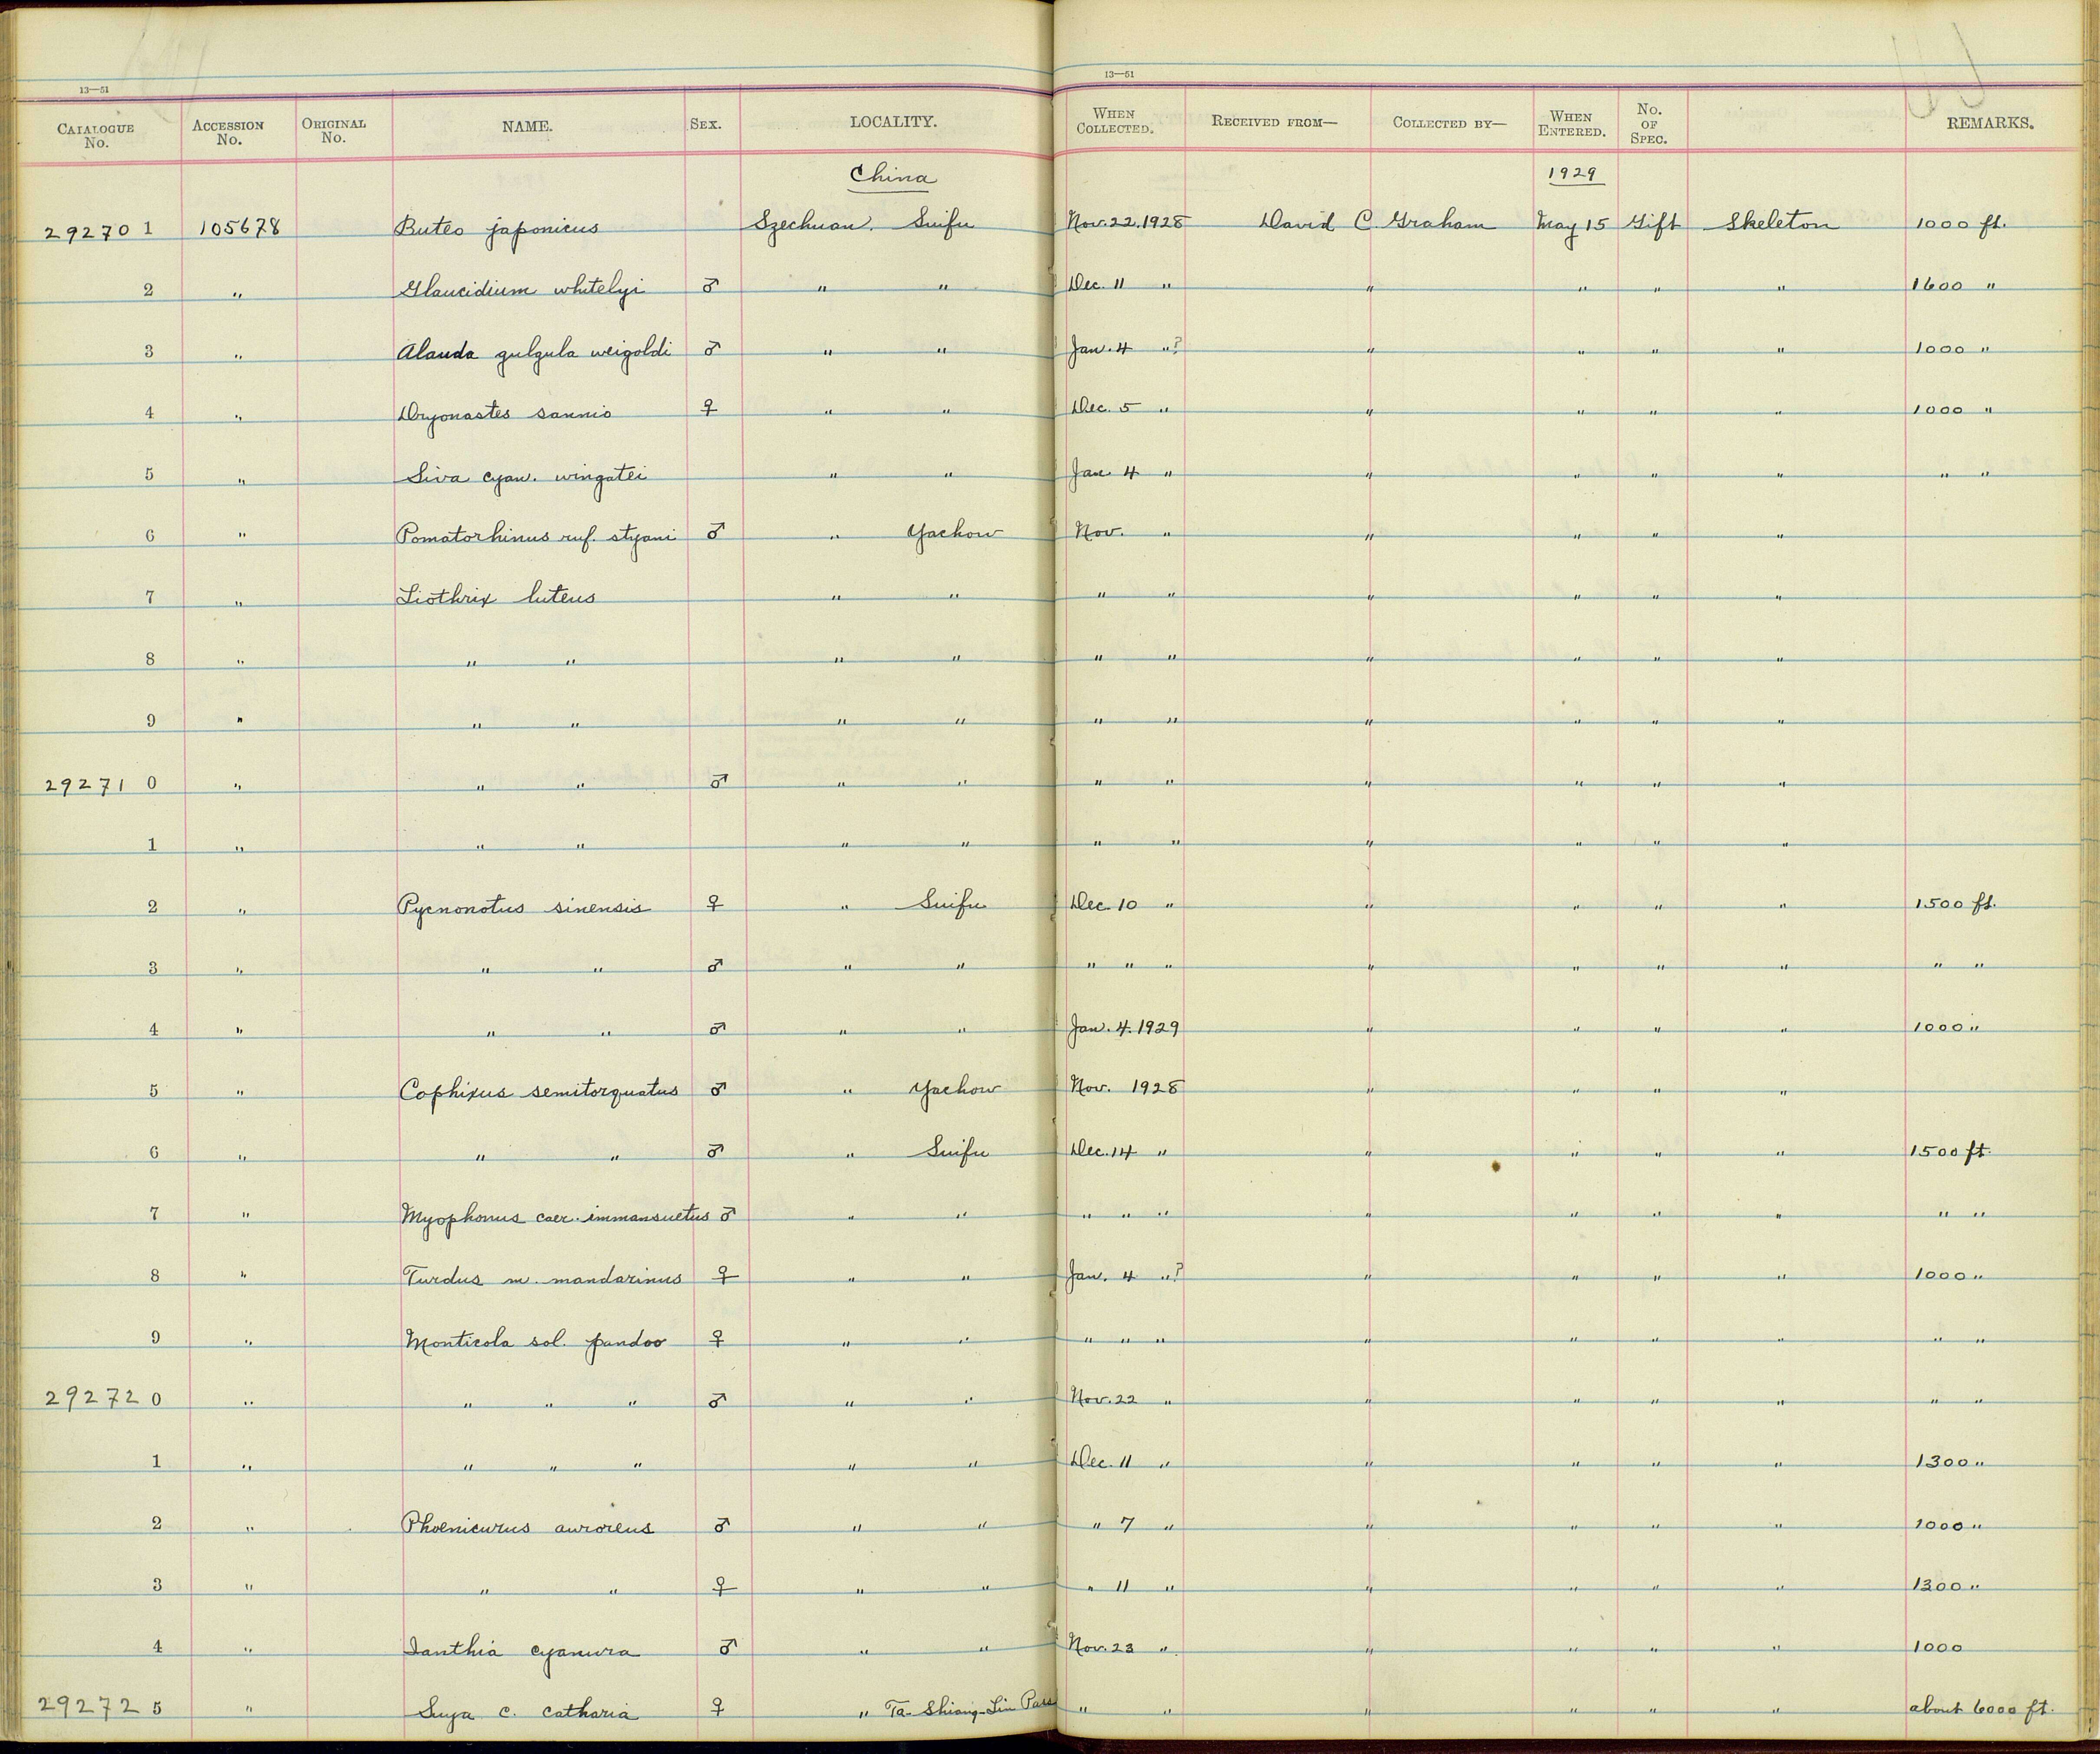 13—51
13—51
CATALOGUE No. ACCESSION No. ORIGINAL No. NAME. SEX. LOCALITY. WHEN COLLECTED. RECEIVED FROM— COLLECTED BY— WHEN ENTERED. No. OF SPEC. REMARKS.
China 1929
292701 105678 Buteo japonicus Szechuan. Suifu Nov. 22. 1928 David C. Graham May 15 Gift Skeleton 1000 ft.
2 " Glaucidium whitelyi ♂ " " Dec. 11 " " " " " 1600 "
3 " Alauda gulgula weigoldi ♂ " " Jan. 4 "? " " " " 1000 "
4 " Dryonastes sannio ♀ " " Dec. 5 " " " " " 1000 "
5 " Siva cyan. wingatei " " Jan. 4 " " " " " " "
6 " Pomatorhinus ruf. styani ♂ " Yachow Nov. " " " " "
7 " Liothrix luteus " " " " " " " "
8 " " " " " " " " " " "
9 " " " " " " " " " " "
292710 " " " ♂ " " " " " " " "
1 " " " " " " " " " " "
2 " Pycnonotus sinensis ♀ " Suifu Dec. 10 " " " " " 1500 ft.
3 " " " ♂ " " " " " " " " " " "
4 " " " ♂ " " Jan. 4. 1929 " " " " 1000 "
5 " Cophixus semitorquatus ♂ " Yachow Nov. 1928 " " " "
6 " " " ♂ " Suifu Dec. 14 " " " " " 1500 ft.
7 " Myophonus caer. immansuetus ♂ " " " " " " " " " " "
8 " Turdus m. mandarinus ♀ " " Jan. 4 "? " " " " 1000 "
9 " Monticola sol. pandoo ♀ " " " " " " " " " " "
292720 " " " " ♂ " " Nov. 22 " " " " " " "
1 " " " " " " Dec. 11 " " " " " 1300 "
2 " Phoenicurus auroreus ♂ " " " 7 " " " " " 1000 "
3 " " " ♀ " " " 11 " " " " " 1300 "
4 " Ianthia cyanura ♂ " " Nov. 23 " " " " " 1000
292725 " Suya c. catharia ♀ " Ta-Shiang-Lin Pass " " " " " " about 6000 ft.